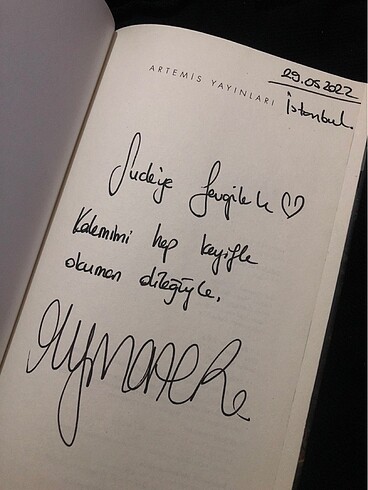 ARTEMİS YAYINLARI
29.05.2022
İstanbul.
Sude'ye Sevgilerle ♡
Kalemimi hep keyifle
okuman dileğiyle.